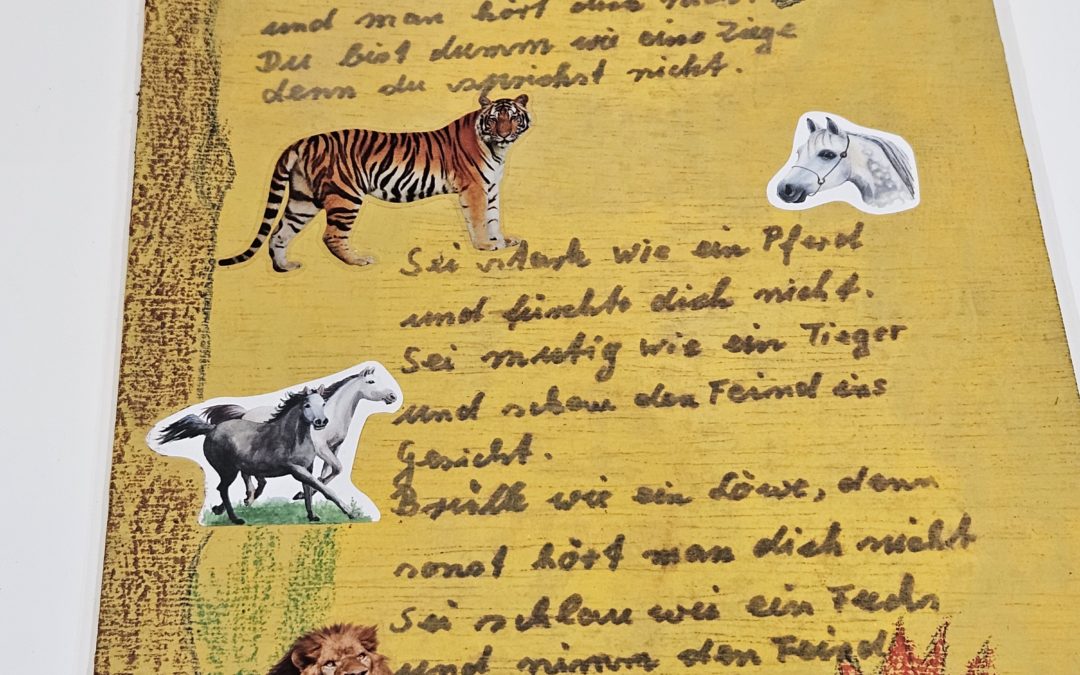 und man hört dich nicht.
Du bist dumm wie eine Ziege
denn du sprichst nicht.
Sei stark wie ein Pferd
und fürchte dich nicht.
Sei mutig wie ein Tieger
und schau den Feind ins
Gesicht.
Brülle wie ein Löwe, denn
sonst hört man dich nicht
Sei schlau wie ein Fuchs
und nimm den Feind